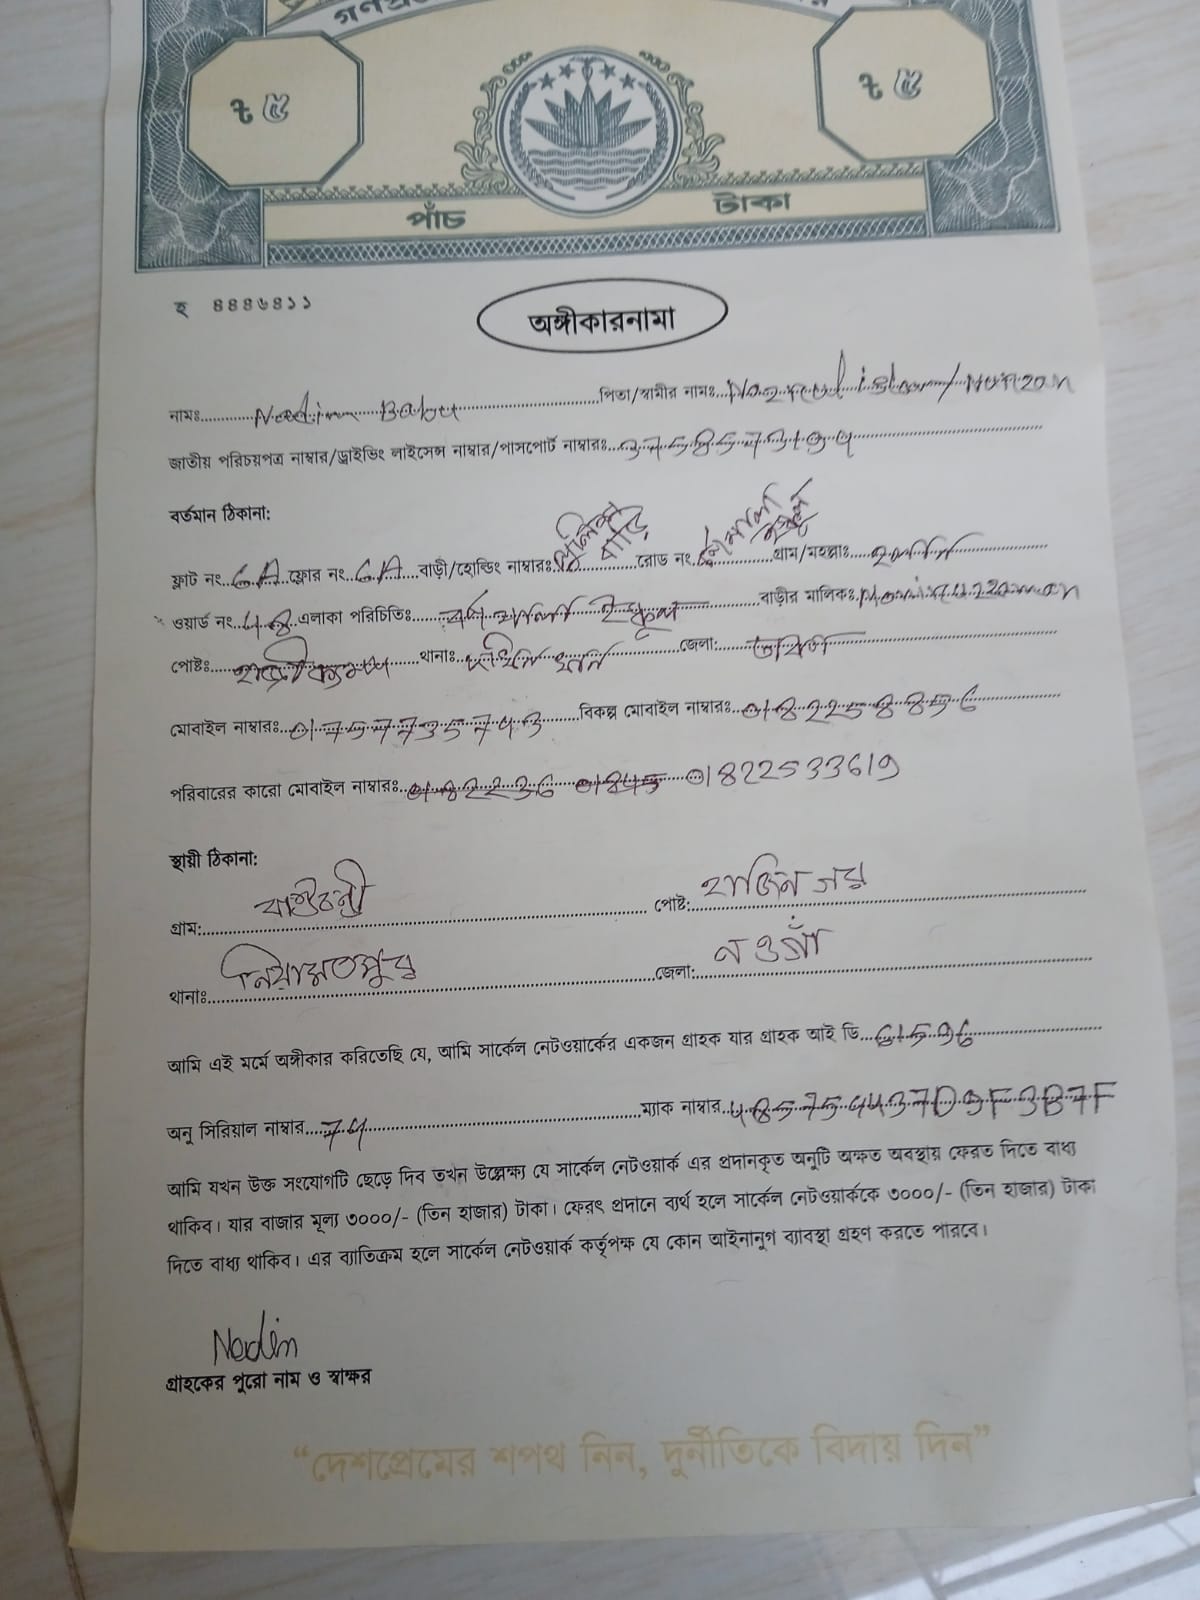 ৳ ৫ ৳ ৫
পাঁচ টাকা
হ ৪৪৪৬৪১১
অঙ্গীকারনামা
নামঃ Nadim Babu পিতা/স্বামীর নামঃ Nazrul islam/
জাতীয় পরিচয়পত্র নাম্বার/ড্রাইভিং লাইসেন্স নাম্বার/পাসপোর্ট নাম্বারঃ
বর্তমান ঠিকানা:
ফ্লাট নং 6A ফ্লোর নং 6A বাড়ী/হোল্ডিং নাম্বারঃ বাড়ি রোড নং গ্রাম/মহল্লাঃ
ওয়ার্ড নং এলাকা পরিচিতিঃ বাড়ীর মালিকঃ
পোষ্টঃ থানাঃ জেলা:
মোবাইল নাম্বারঃ বিকল্প মোবাইল নাম্বারঃ
পরিবারের কারো মোবাইল নাম্বারঃ 01822533619
স্থায়ী ঠিকানা:
গ্রাম: পোষ্ট: হাজিনগর
থানাঃ নিয়ামতপুর জেলা: নওগাঁ
আমি এই মর্মে অঙ্গীকার করিতেছি যে, আমি সার্কেল নেটওয়ার্কের একজন গ্রাহক যার গ্রাহক আই ডি
অনু সিরিয়াল নাম্বার ম্যাক নাম্বার
আমি যখন উক্ত সংযোগটি ছেড়ে দিব তখন উল্লেক্ষ্য যে সার্কেল নেটওয়ার্ক এর প্রদানকৃত অনুটি অক্ষত অবস্থায় ফেরত দিতে বাধ্য
থাকিব। যার বাজার মূল্য ৩০০০/- (তিন হাজার) টাকা। ফেরৎ প্রদানে ব্যর্থ হলে সার্কেল নেটওয়ার্ককে ৩০০০/- (তিন হাজার) টাকা
দিতে বাধ্য থাকিব। এর ব্যতিক্রম হলে সার্কেল নেটওয়ার্ক কর্তৃপক্ষ যে কোন আইনানুগ ব্যবস্থা গ্রহণ করতে পারবে।
Nadim
গ্রাহকের পুরো নাম ও স্বাক্ষর
“দেশপ্রেমের শপথ নিন, দুর্নীতিকে বিদায় দিন”